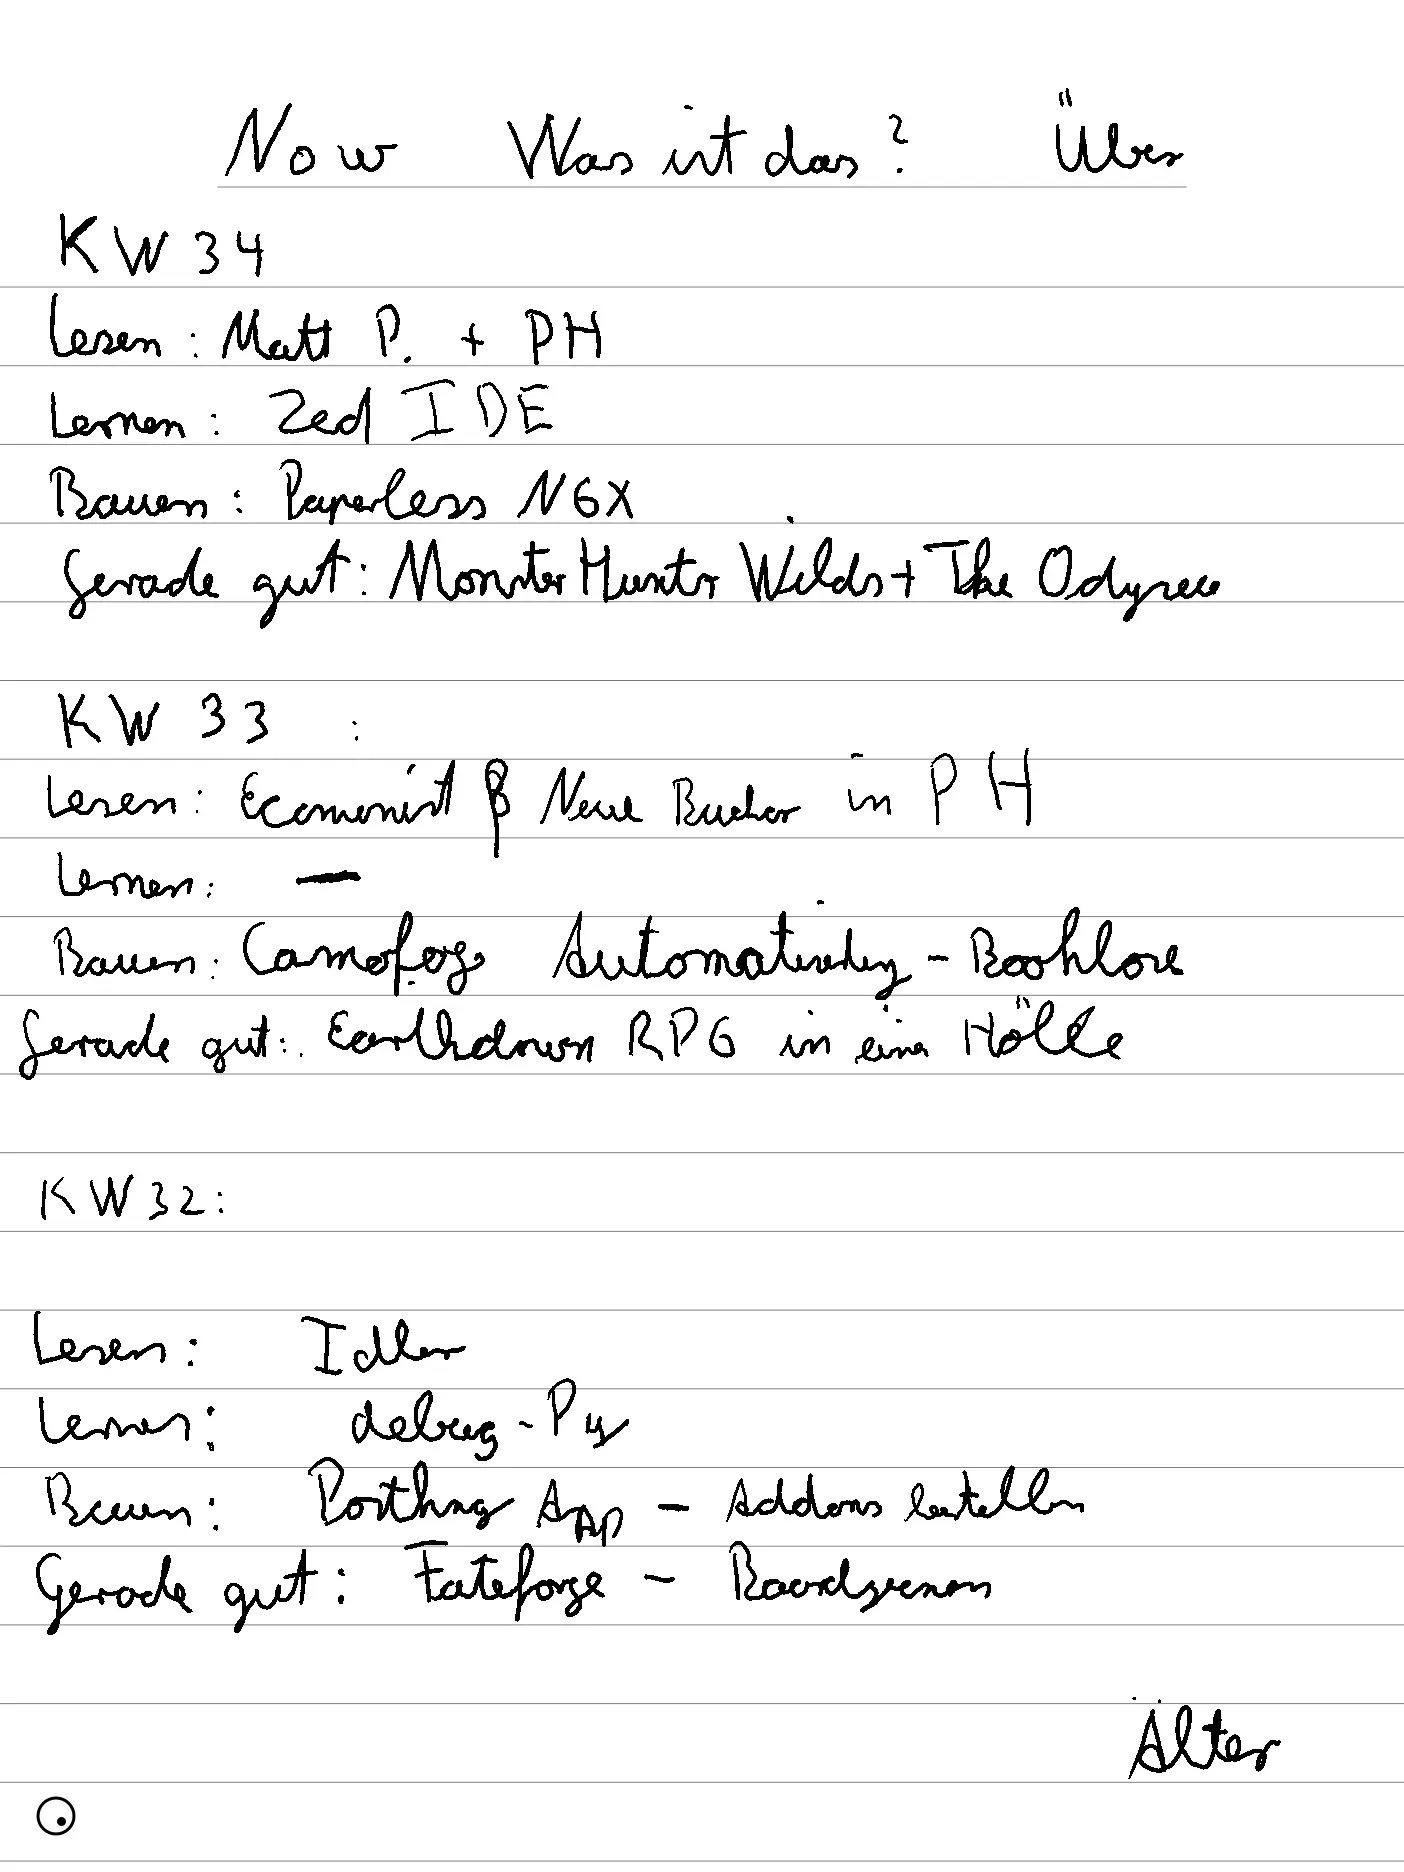 Now Was ist das? Über
KW 34
Lesen: Matt P. + PH
Lernen: Zed IDE
Bauen: Paperless NGX
Gerade gut: Monster Hunter Wilds + The Odysee
KW 33 :
Lesen: Economist & Neue Bücher in PH
Lernen: –
Bauen: Camofog Automatisierung - Booklore
Gerade gut: Earthdawn RPG in einer Hölle
KW 32:
Lesen: Idler
Lernen: debug-Py
Bauen: App - Addons bestellen
Gerade gut: Fateforge - Boardgame
Älter